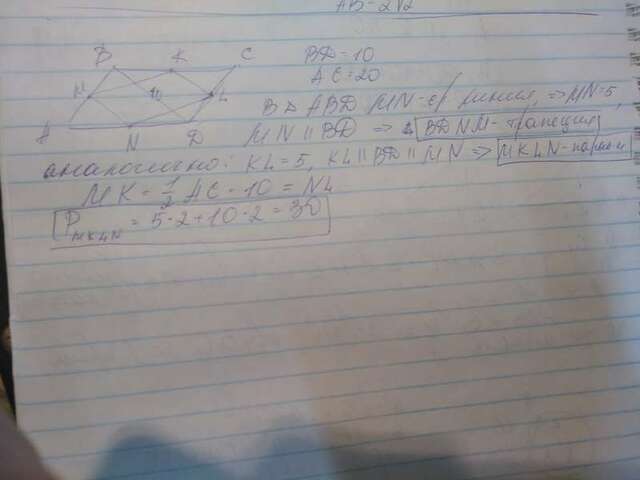 AB=2√2
B K C
M L
A N D
BD=10
AC=20
В Δ ABD MN-ср линия, ⇒ MN=5,
MN || BD ⇒ BDNM-трапеция
аналогично: KL=5, KL || BD || MN ⇒ MKLN-паралл
MK = 1/2 AC = 10 = NL
P MKLN = 5·2+10·2=30